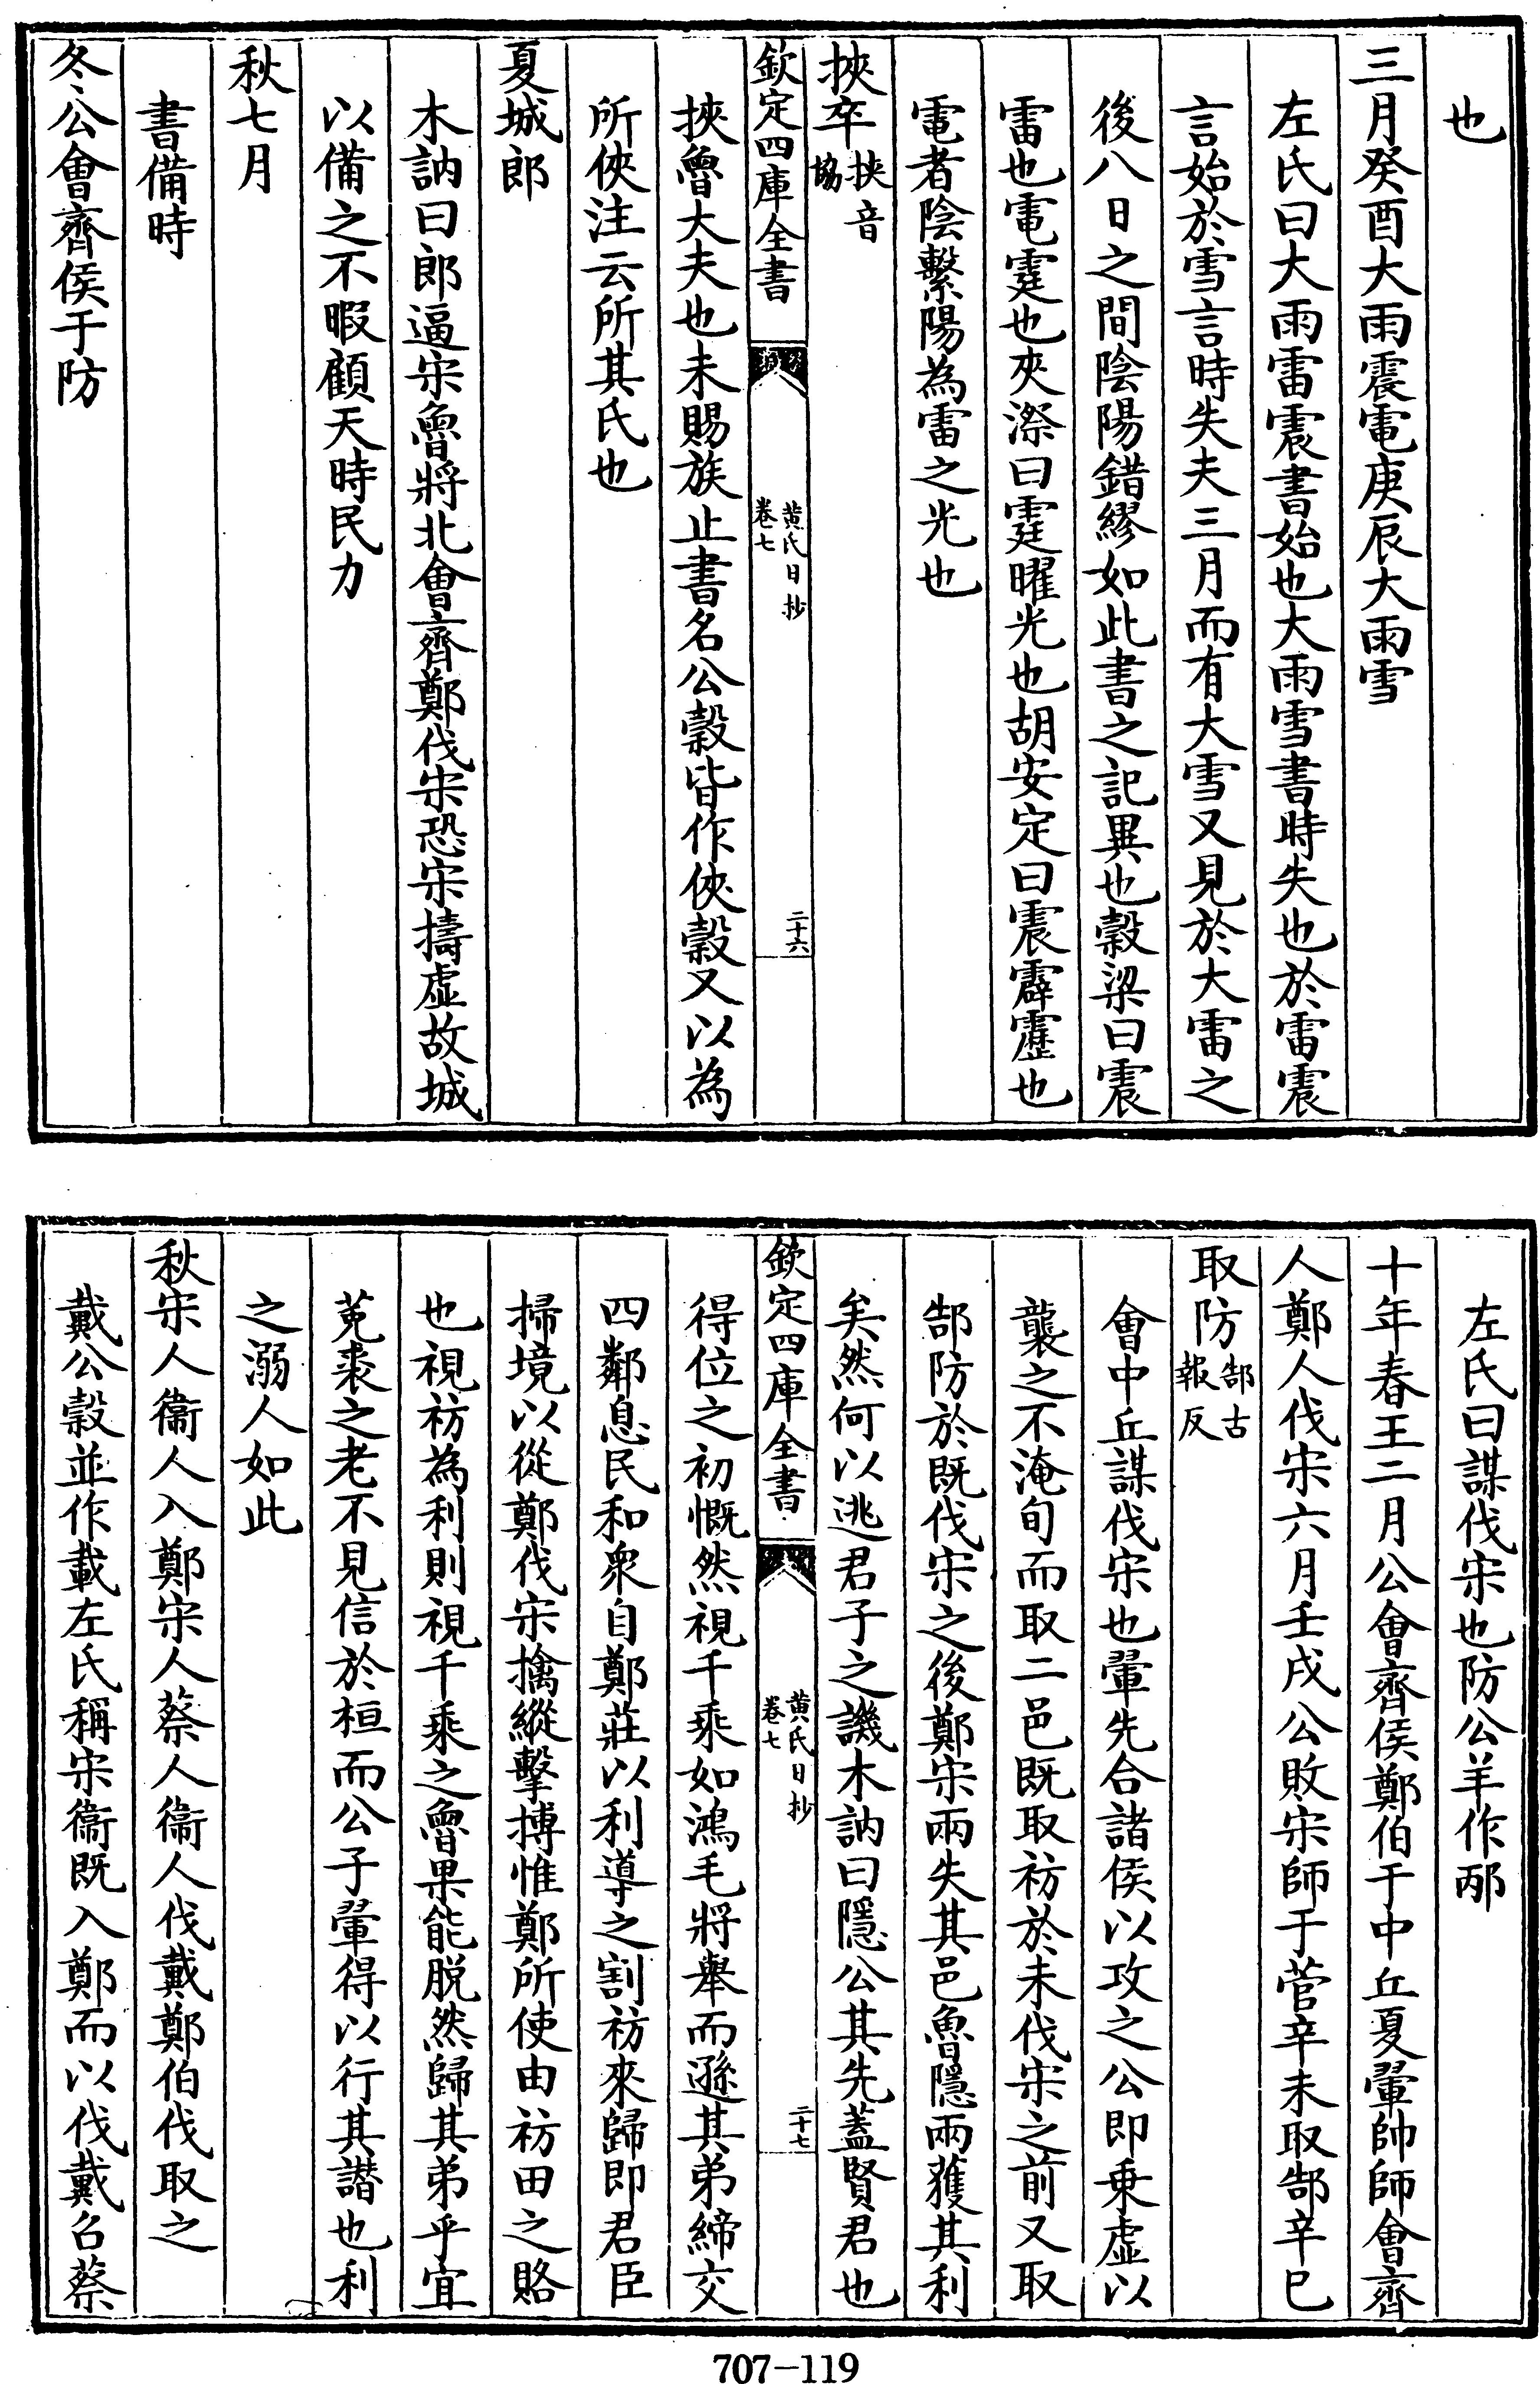 也
三月癸酉大雨震電庚辰大雨雪
左氏曰大雨雷震書始也大雨雪書時失也於雷震
言始於雪言時失夫三月而有大雪又見於大雷之
後八日之間陰陽錯繆如此書之記異也穀梁曰震
雷也電霆也夾漈曰霆曜光也胡安定曰震霹靂也
電者陰繫陽為雷之光也
挾卒挾音
協
欽定四庫全書
黃氏日抄
卷七
二十六
挾魯大夫也未賜族止書名公穀皆作俠穀又以為
所俠注云所其氏也
夏城郎
木訥曰郎逼宋魯將北會齊鄭伐宋恐宋擣虛故城
以備之不暇顧天時民力
秋七月
書備時
冬公會齊侯于防
左氏曰謀伐宋也防公羊作邴
十年春王二月公會齊侯鄭伯于中丘夏翬帥師會齊
人鄭人伐宋六月壬戌公敗宋師于菅辛未取郜辛巳
取防郜古
報反
會中丘謀伐宋也翬先合諸侯以攻之公即乗虛以
襲之不淹旬而取二邑既取祊於未伐宋之前又取
郜防於既伐宋之後鄭宋兩失其邑魯隱兩獲其利
矣然何以逃君子之譏木訥曰隱公其先蓋賢君也
欽定四庫全書
黃氏日抄
卷七
二十七
得位之初慨然視千乘如鴻毛將舉而遜其弟締交
四鄰息民和衆自鄭莊以利導之割祊來歸即君臣
掃境以從鄭伐宋擒縱擊搏惟鄭所使由祊田之賂
也視祊為利則視千乘之魯果能脱然歸其弟乎宜
菟裘之老不見信於桓而公子翬得以行其譖也利
之溺人如此
秋宋人衞人入鄭宋人蔡人衞人伐戴鄭伯伐取之
戴公穀並作載左氏稱宋衞既入鄭而以伐戴召蔡
707-119